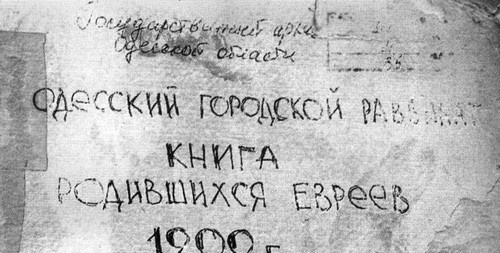 Государственный архив
Одесской области
ОДЕССКИЙ ГОРОДСКОЙ РАВВИНАТ
КНИГА
РОДИВШИХСЯ ЕВРЕЕВ